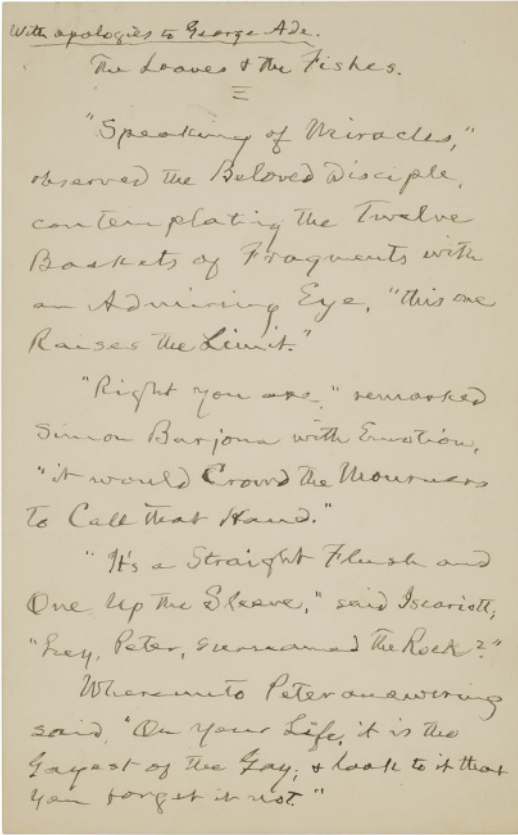 With apologies to George Ade.
The Loaves & the Fishes.
"Speaking of Miracles,"
observed the Beloved Disciple,
contemplating the Twelve
Baskets of Fragments with
an Admiring Eye, "this one
Raises the Limit."
"Right you are," remarked
Simon Barjona with Emotion,
"it would Crowd the Mourners
to Call that Hand."
"It's a Straight Flush and
One Up the Sleeve," said Iscariott;
"hey, Peter, surnamed The Rock?"
Whereunto Peter answering
said, "On Your Life, it is the
Gayest of the Gay; & look to it that
you forget it not."